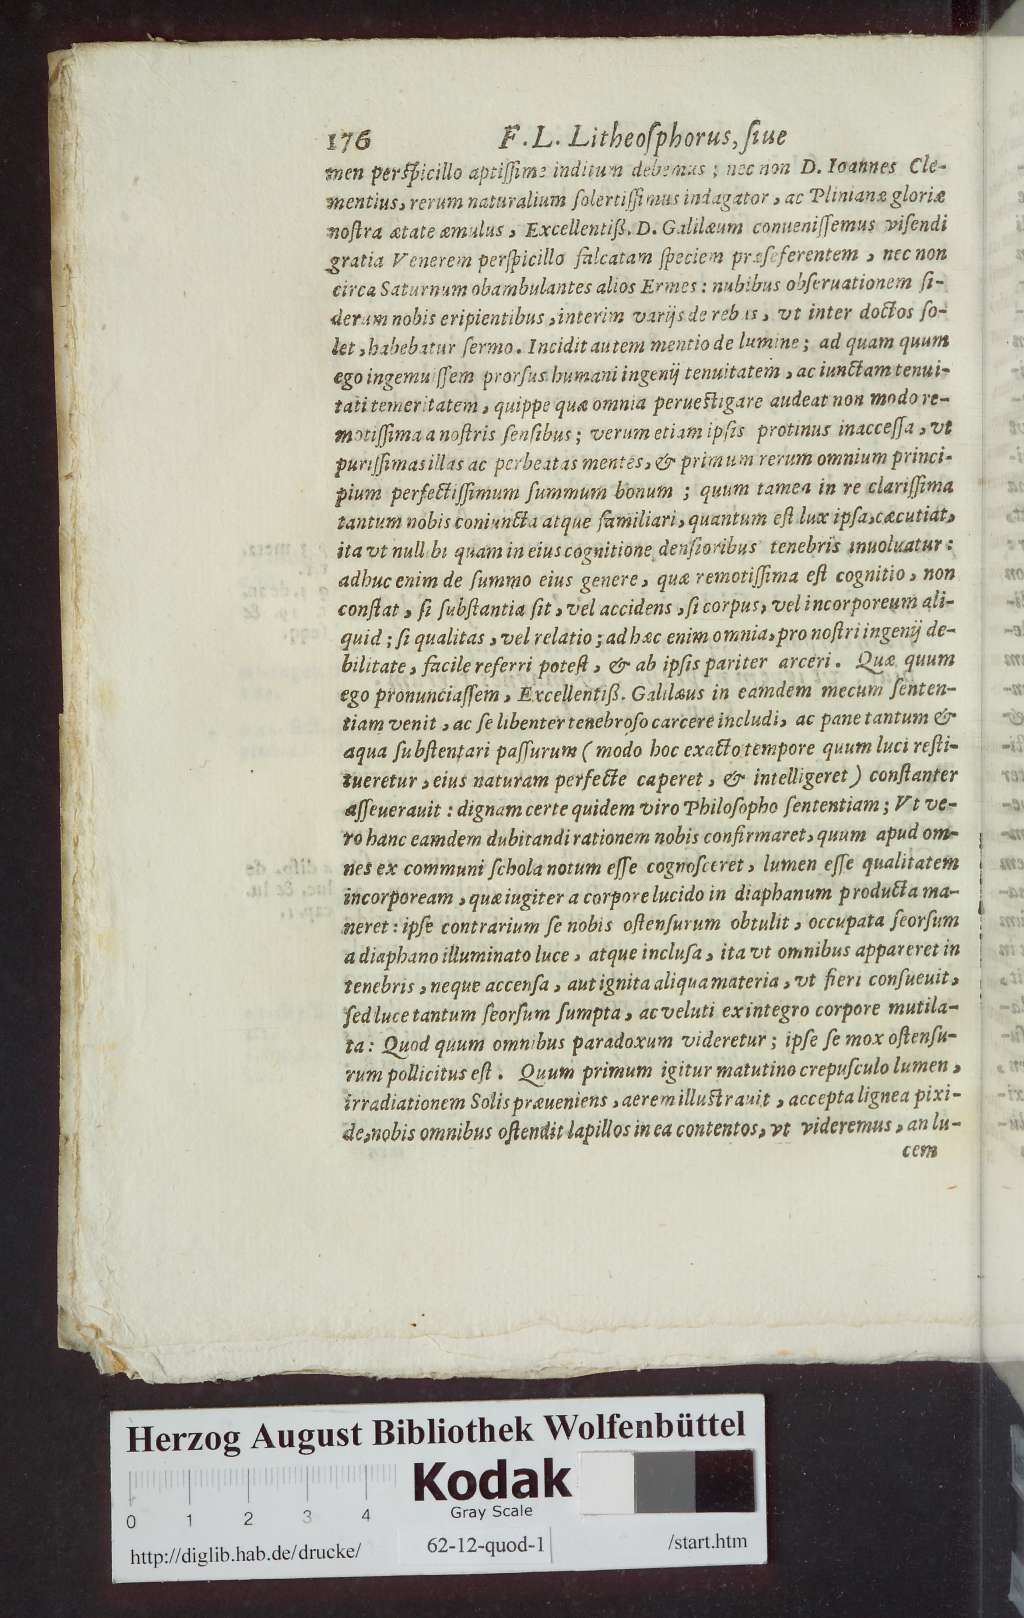 176 F. L. Litheoſphorus, ſiue
men perſpicillo aptiſſime inditum debemus ; nec non D. Ioannes Cle-
mentius, rerum naturalium ſolertiſſimus indagator , ac Plinianæ gloriæ
noſtra ætate æmulus , Excellentiß. D. Galilæum conueniſſemus viſendi
gratia Venerem perſpicillo falcatam ſpeciem præſeferentem , nec non
circa Saturnum obambulantes alios Ermes : nubibus obſeruationem ſi-
derum nobis eripientibus , interim varijs de rebus , vt inter doctos ſo-
let , habebatur ſermo. Incidit autem mentio de lumine ; ad quam quum
ego ingemuiſſem prorſus humani ingenij tenuitatem , ac iunctam tenui-
tati temeritatem , quippe quæ omnia perueſtigare audeat non modo re-
motiſſima a noſtris ſenſibus ; verum etiam ipſis protinus inacceſſa , vt
puriſſimas illas ac perbeatas mentes , & primum rerum omnium princi-
pium perfectiſſimum ſummum bonum ; quum tamen in re clariſſima
tantum nobis coniuncta atque familiari, quantum eſt lux ipſa, cæcutiat,
ita vt nullibi quam in eius cognitione denſioribus tenebris inuoluatur :
adhuc enim de ſummo eius genere , quæ remotiſſima eſt cognitio , non
conſtat , ſi ſubſtantia ſit , vel accidens , ſi corpus, vel incorporeum ali-
quid ; ſi qualitas , vel relatio ; ad hæc enim omnia, pro noſtri ingenij de-
bilitate , facile referri poteſt , & ab ipſis pariter arceri . Quæ quum
ego pronunciaſſem , Excellentiß. Galilæus in eamdem mecum ſenten-
tiam venit , ac ſe libenter tenebroſo carcere includi, ac pane tantum &
aqua ſubſtentari paſſurum ( modo hoc exacto tempore quum luci reſti-
tueretur , eius naturam perfecte caperet , & intelligeret ) conſtanter
aſſeuerauit : dignam certe quidem viro Philoſopho ſententiam ; Vt ve-
ro hanc eamdem dubitandi rationem nobis confirmaret, quum apud om-
nes ex communi ſchola notum eſſe cognoſceret , lumen eſſe qualitatem
incorpoream , quæ iugiter a corpore lucido in diaphanum producta ma-
neret : ipſe contrarium ſe nobis oſtenſurum obtulit , occupata ſeorſum
a diaphano illuminato luce , atque incluſa , ita vt omnibus appareret in
tenebris , neque accenſa , aut ignita aliqua materia , vt fieri conſueuit,
ſed luce tantum ſeorſum ſumpta , ac veluti ex integro corpore mutila-
ta : Quod quum omnibus paradoxum videretur ; ipſe ſe mox oſtenſu-
rum pollicitus eſt . Quum primum igitur matutino crepuſculo lumen ,
irradiationem Solis præueniens , aerem illuſtrauit , accepta lignea pixi-
de, nobis omnibus oſtendit lapillos in ea contentos, vt videremus , an lu-
cem
Herzog August Bibliothek Wolfenbüttel
Kodak
Gray Scale
0 1 2 3 4
http://diglib.hab.de/drucke/ 62-12-quod-1 /start.htm